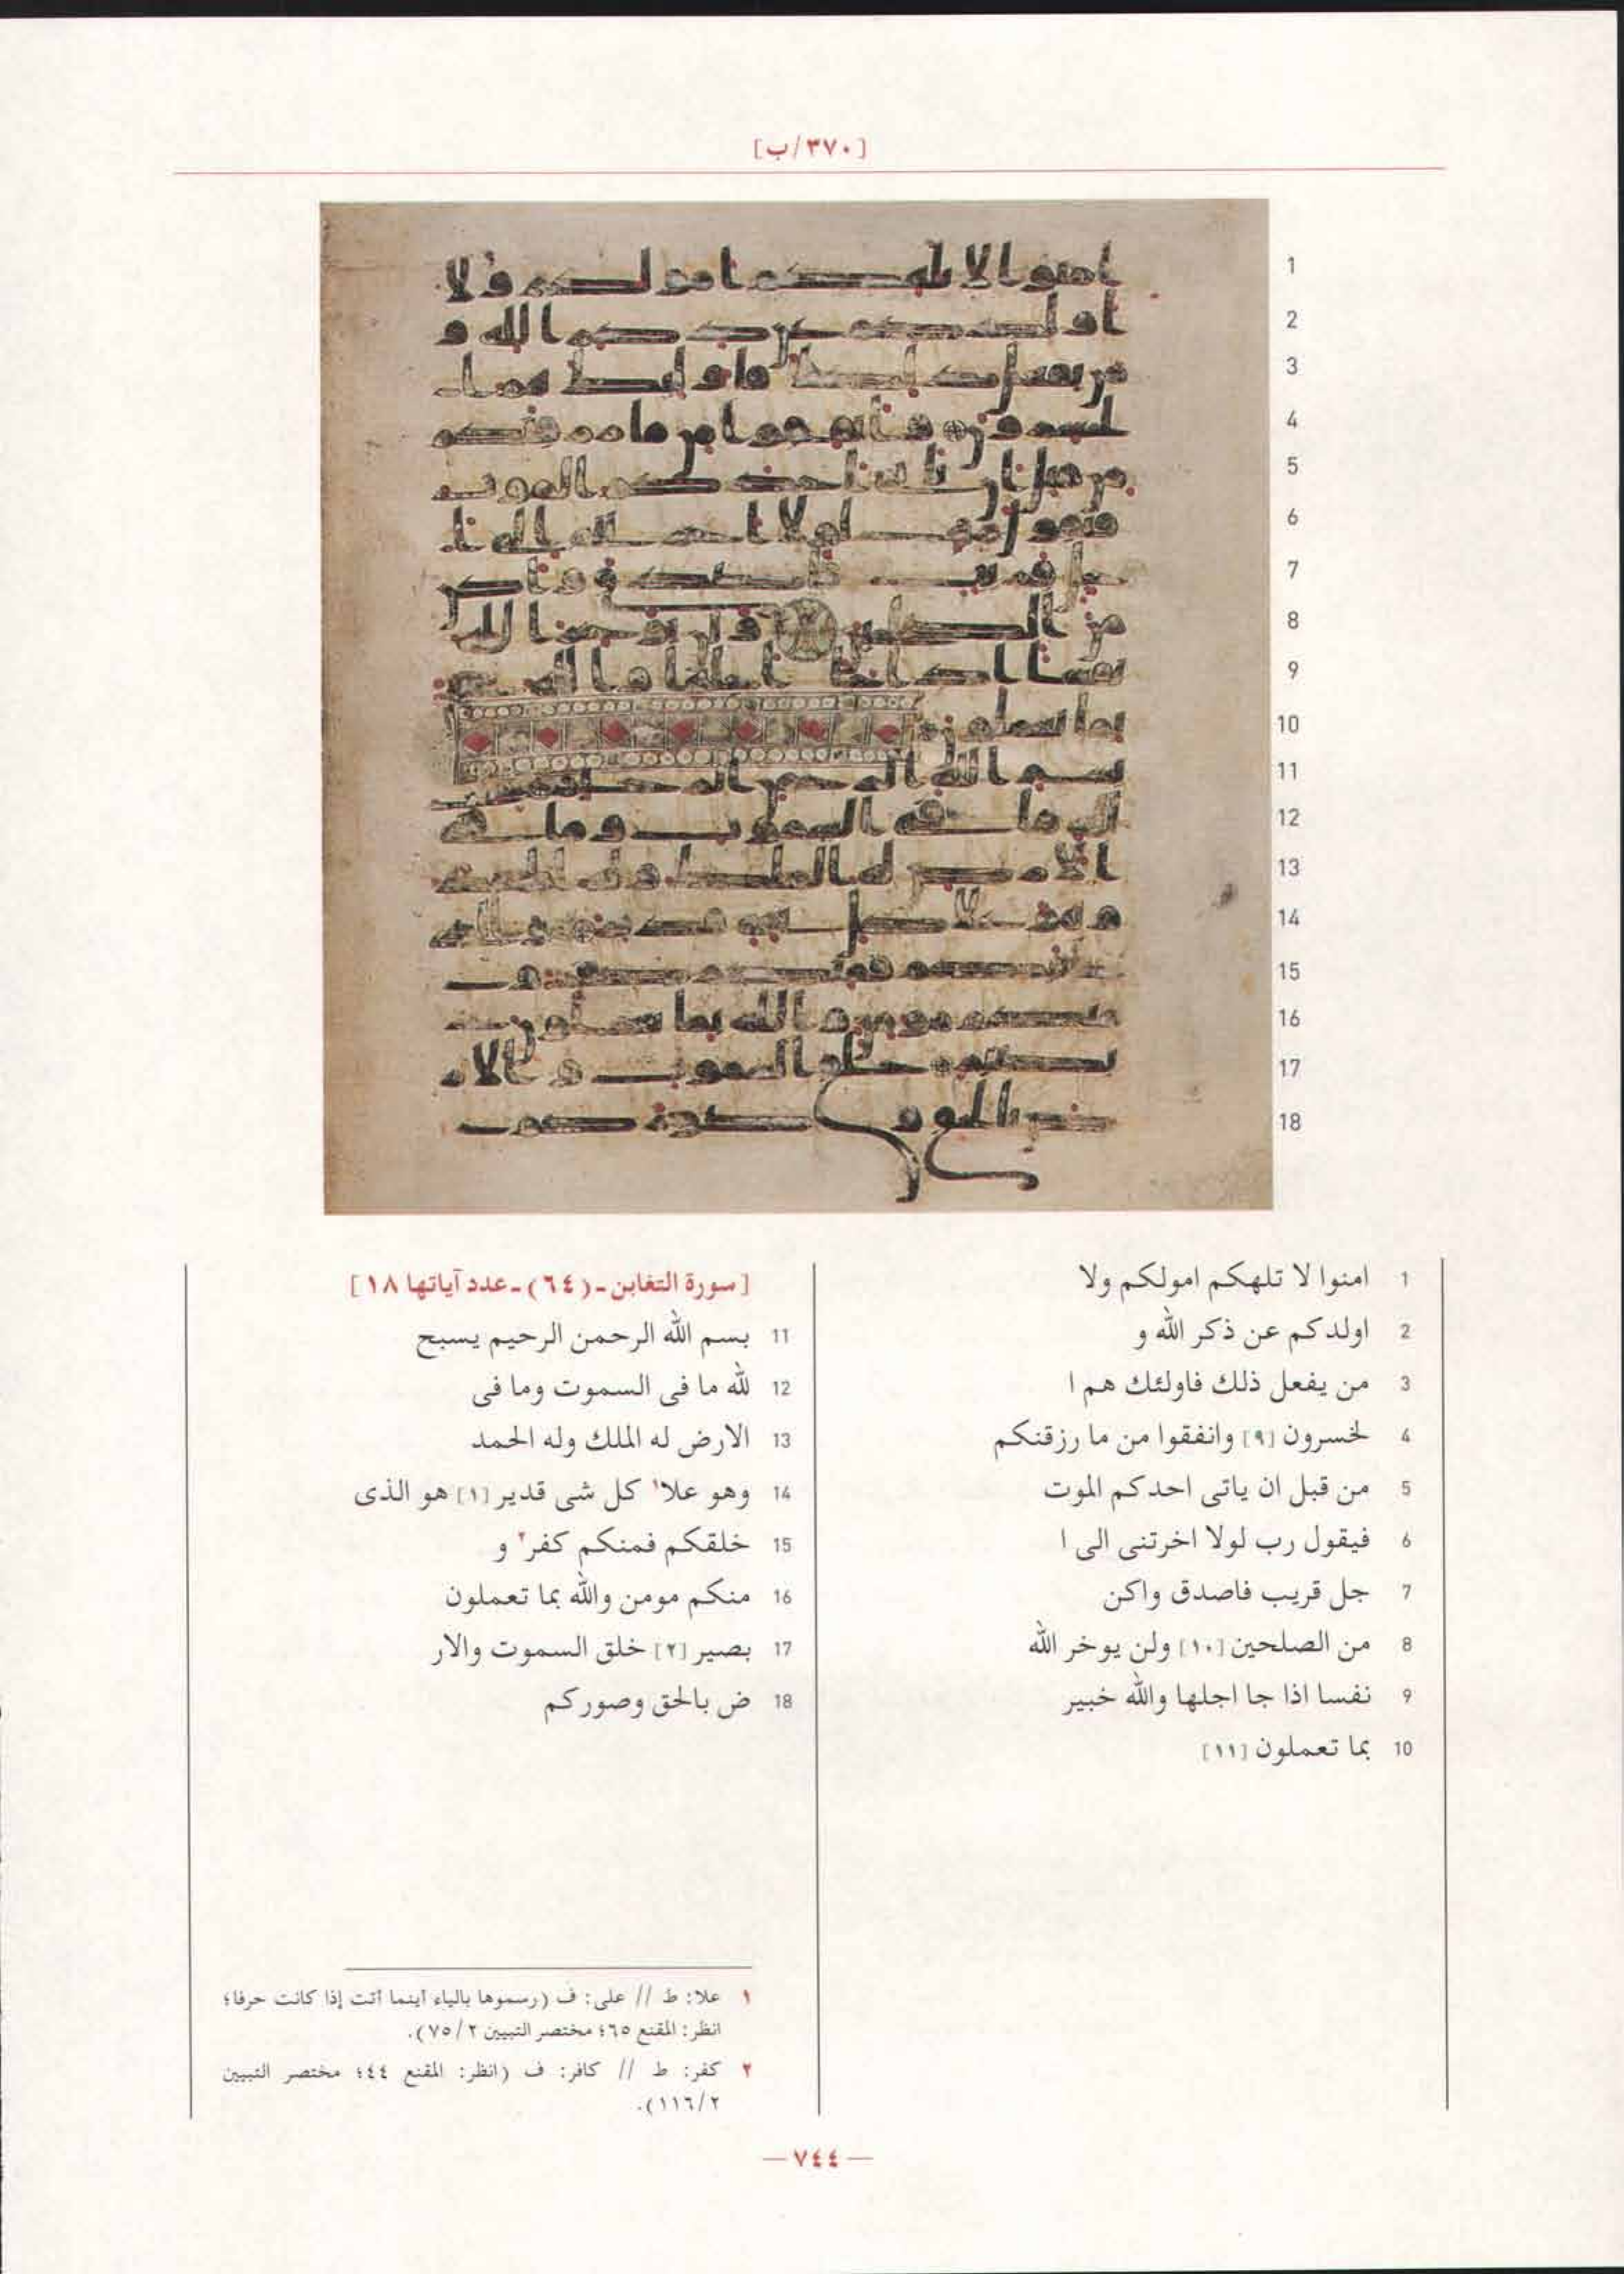 [٣٧٠/ب]
1 امنوا لا تلهكم امولكم ولا
2 اولدكم عن ذكر الله و
3 من يفعل ذلك فاولئك هم ا
4 لخسرون [٩] وانفقوا من ما رزقنكم
5 من قبل ان ياتى احدكم الموت
6 فيقول رب لولا اخرتنى الى ا
7 جل قريب فاصدق واكن
8 من الصلحين [١٠] ولن يوخر الله
9 نفسا اذا جا اجلها والله خبير
10 بما تعملون [١١]
[سورة التغابن ـ (٦٤) ـ عدد آياتها ١٨]
11 بسم الله الرحمن الرحيم يسبح
12 لله ما فى السموت وما فى
13 الارض له الملك وله الحمد
14 وهو علا١ كل شى قدير [١] هو الذى
15 خلقكم فمنكم كفر٢ و
16 منكم مومن والله بما تعملون
17 بصير [٢] خلق السموت والار
18 ض بالحق وصوركم
١ علا: ط // على: ف (رسموها بالياء أينما أتت إذا كانت حرفا؛
انظر: المقنع ٦٥؛ مختصر التبيين ٧٥/٢).
٢ كفر: ط // كافر: ف (انظر: المقنع ٤٤؛ مختصر التبيين
١١٦/٢).
— ٧٤٤ —